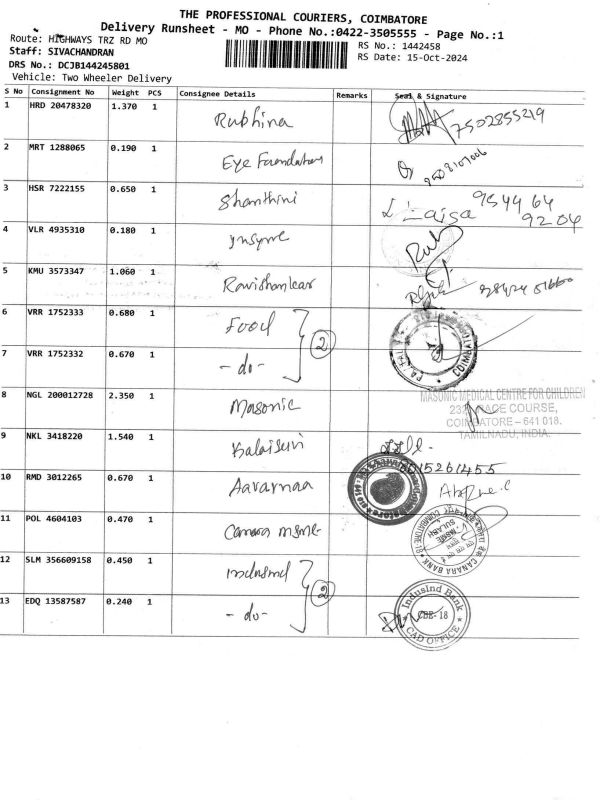 THE PROFESSIONAL COURIERS, COIMBATORE
Delivery Runsheet - MO - Phone No.:0422-3505555 - Page No.:1
Route: HIGHWAYS TRZ RD MO
RS No.: 1442458
Staff: SIVACHANDRAN
RS Date: 15-Oct-2024
DRS No.: DCJB144245801
Vehicle: Two Wheeler Delivery
S No Consignment No Weight PCS Consignee Details Remarks Seal & Signature
1 HRD 20478320 1.370 1 Rubhina 7502855219
2 MRT 1288065 0.190 1 Eye Foundation
3 HSR 7222155 0.650 1 Shanthini 9544 64
9204
4 VLR 4935310 0.180 1
5 KMU 3573347 1.060 1 Ravishankar
6 VRR 1752333 0.680 1 Food
2
7 VRR 1752332 0.670 1 - do -
COIMBATORE
8 NGL 200012728 2.350 1 Masonic
MASONIC MEDICAL CENTRE FOR CHILDREN
RACE COURSE,
COIMBATORE – 641 018.
TAMILNADU, INDIA.
9 NKL 3418220 1.540 1 Kalaiselvi
15261455
10 RMD 3012265 0.670 1 Aavarnaa
11 POL 4604103 0.470 1 Canara msme
CANARA BANK
12 SLM 356609158 0.450 1 Indusind
2
13 EDQ 13587587 0.240 1 - do -
IndusInd Bank
CBE- 18
CAD OFFICE